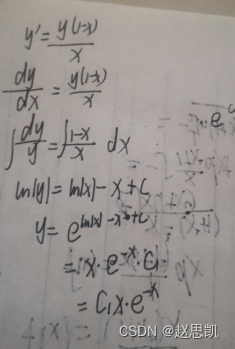 y' = y(1-x)/x
dy/dx = y(1-x)/x
∫ dy/y = ∫ 1-x/x dx
ln|y| = ln|x| - x + C
y = e^{ln|x| - x + C}
= x · e^{-x} · C₁
= C₁x · e^{-x}
CSDN @赵思凯